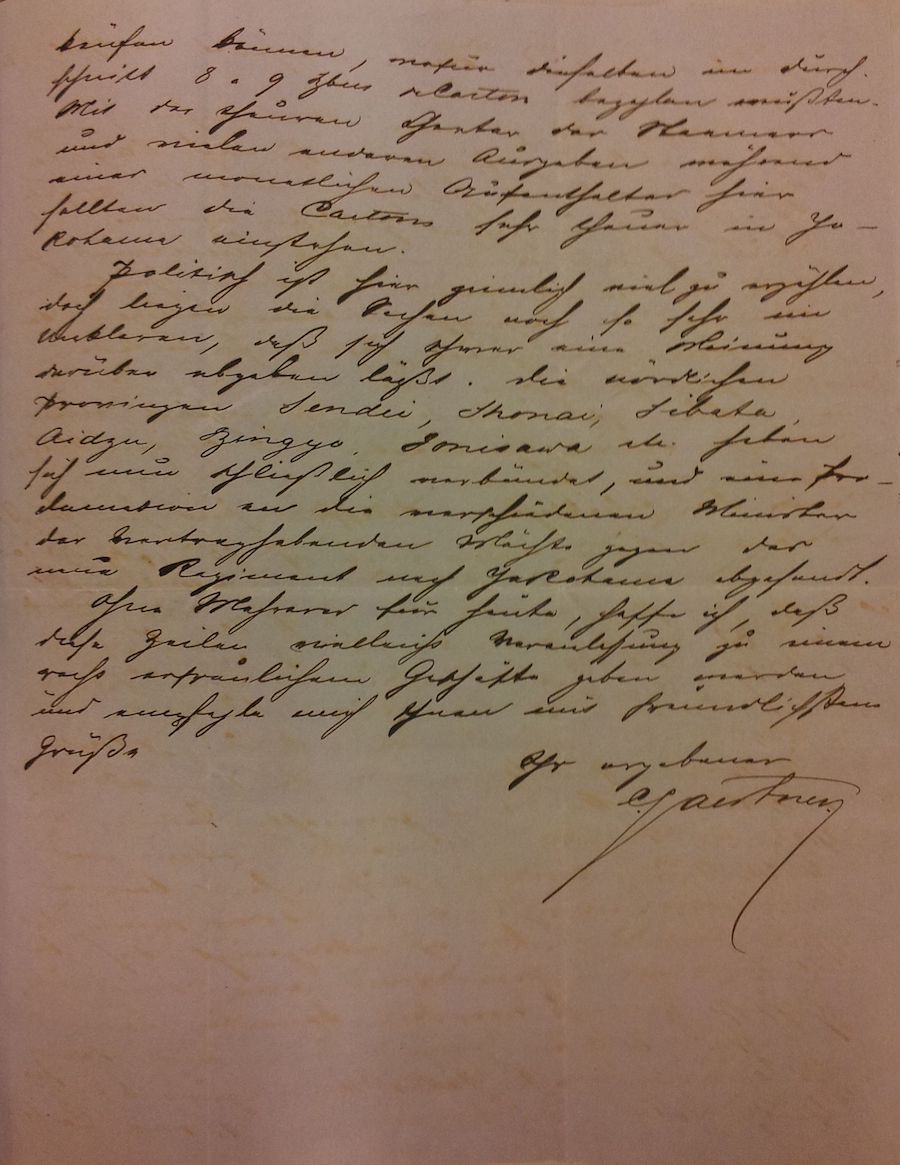 kaufen können, wofür dieselben im durch-
schnitt 8 a 9 Ibus Carton bezahlen mußten.
Mit der theuren Charter des Steamers
und vielen anderen Ausgaben während
eines monatlichen Aufenthaltes hier
sollten die Cartons sehr theuer in Yo-
kohama einstehen.
Politisch ist hier ziemlich viel zu erzählen,
doch liegen die Sachen noch so sehr im
Unklaren, daß sich schwer eine Meinung
darüber abgeben läßt. die nördlichen
Provinzen Sendei, Shonai, Sibata,
Aidzu, Yonisawa etc. haben
sich nun schließlich verbündet, und eine Pro-
clamation an die verschiedenen Minister
der Vertraghabenden Mächte gegen das
neue Regiment nach Yokohama abgesandt.
Ohne Mehreres für heute, hoffe ich, daß
diese Zeilen vielleicht Veranlassung zu einem
recht erfreulichem Geschäfte geben werden
und empfehle mich Ihnen mit freundlichstem
Gruße
Ihr ergebener
C. Gaertner.